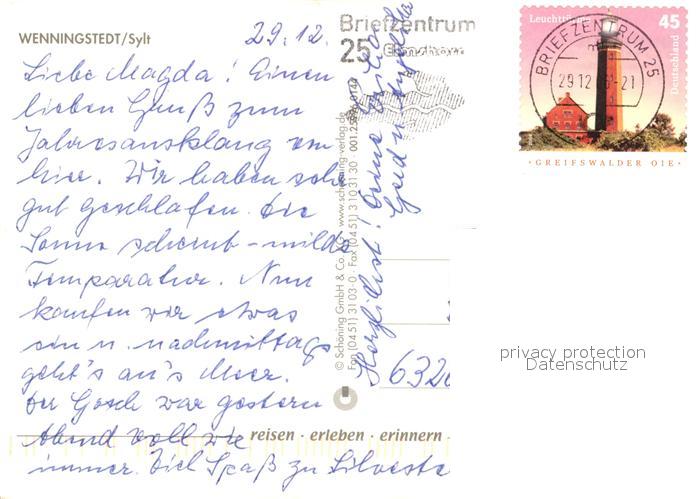 WENNINGSTEDT/Sylt
29.12.
Liebe Magda! Einen
lieben Gruß zum
Jahresausklang von
hier. Wir haben sehr
gut geschlafen. Die
Sonne scheint - milde
Temparatur. Nun
kaufen wir etwas
ein u. nachmittags
geht's an's Meer.
Der Gosch war gestern
Abend voll wie
immer. Viel Spaß zu Silveste
Herzlichst! Deine
Gerd u.
reisen · erleben · erinnern
© Schöning GmbH & Co. KG · www.schoening-verlag.de
Fon (0451) 3103-0 · Fax (0451) 3103130
Briefzentrum
25
Leuchttürme
45
Deutschland
BRIEFZENTRUM 25
29.12
-21
·GREIFSWALDER OIE·
632
privacy protection
Datenschutz